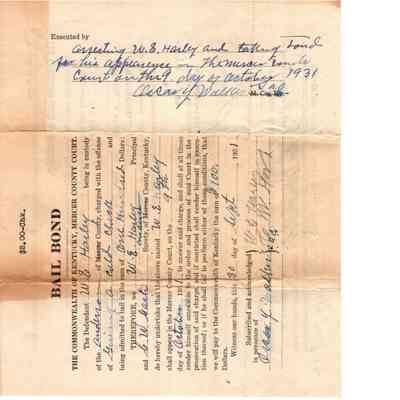 Executed by
arresting W. E. Harley and taking bond
for his appearance in the Mercer County
Court on this 9 day of October 1931
$2.00—Chx.
BAIL BOND
THE COMMONWEALTH OF KENTUCKY, MERCER COUNTY COURT.
The Defendant W E Harley being in custody
of the of Mercer charged with the offense
of and
being admitted to bail in the sum of One Hundred Dollars:
THEREFORE, we W. E. Harley Principal
and C. W. Surety, of Mercer County, Kentucky,
do hereby undertake that the above named W E Harley
shall appear in the Mercer County Court, on the 9
day of October 1931, to answer said charge, and shall at all times
render himself amenable to the order and process of said Court in the
prosecution of said charge, and if convicted shall render himself in execu-
tion thereof; or if he shall fail to perform either of these conditions, that
we will pay to the Commonwealth of Kentucky the sum of $100.
Dollars.
Witness our hands, this 30 day of Sept 1931
Subscribed and acknowledged
in presence of